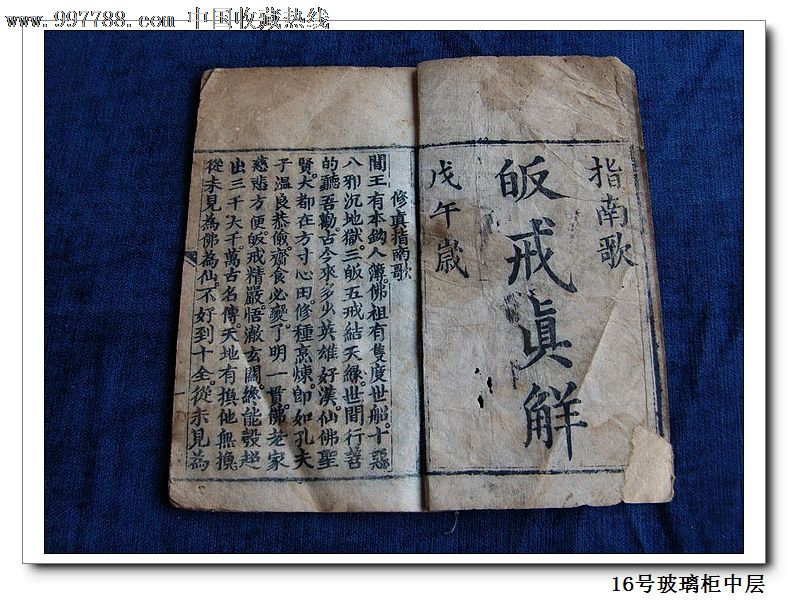 www.997788.com 中国收藏热线
指南歌
皈戒眞解
戊午歲
修真指南歌
閻王有本鈎人簿。佛祖有隻度世船。十惡
八邪沉地獄。三皈五戒結天緣。世間行善
的。聽吾勸。古今來多少英雄好漢。仙佛聖
賢。大都在方寸心田。修種烹煉。即如孔夫
子溫良恭儉。齋食必變。了明一貫。佛老家
慈悲方便。皈戒精嚴。悟澈玄關。終能彀超
出三千大千。萬古名傳。天地有換。他無換
從未見為佛為仙。不好到十全。從未見為
16号玻璃柜中层